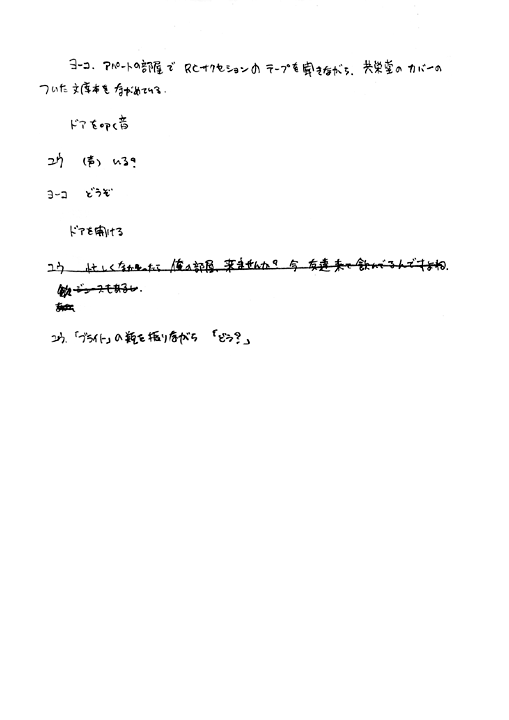 ヨーコ、アパートの部屋で RCサクセションの テープを聞きながら、共栄堂の カバーの
ついた 文庫本を ながめている.
ドアをたたく音
ユウ (声) いる?
ヨーコ どうぞ
ドアを開ける
ユウ 忙しくなかったら 俺の部屋、来ませんか? 今 友達来て飲んでるんですよね.
ジュースもあるし.
ユウ、「ブライト」の瓶を振りながら 「どう?」